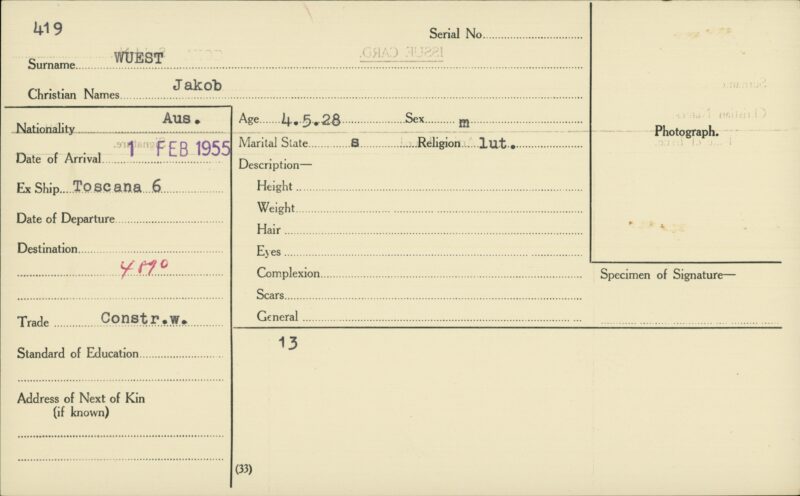 419
Serial No.
ISSUE CARD.
Surname WUEST
Christian Names Jakob
Nationality Aus.
Date of Arrival 1 FEB 1955
Ex Ship Toscana 6
Date of Departure
Destination
4890
Trade Constr.w.
Standard of Education
Address of Next of Kin
(if known)
Age 4.5.28 Sex m
Marital State s Religion lut.
Description—
Height
Weight
Hair
Eyes
Complexion
Scars
General
13
(33)
Photograph.
Specimen of Signature—